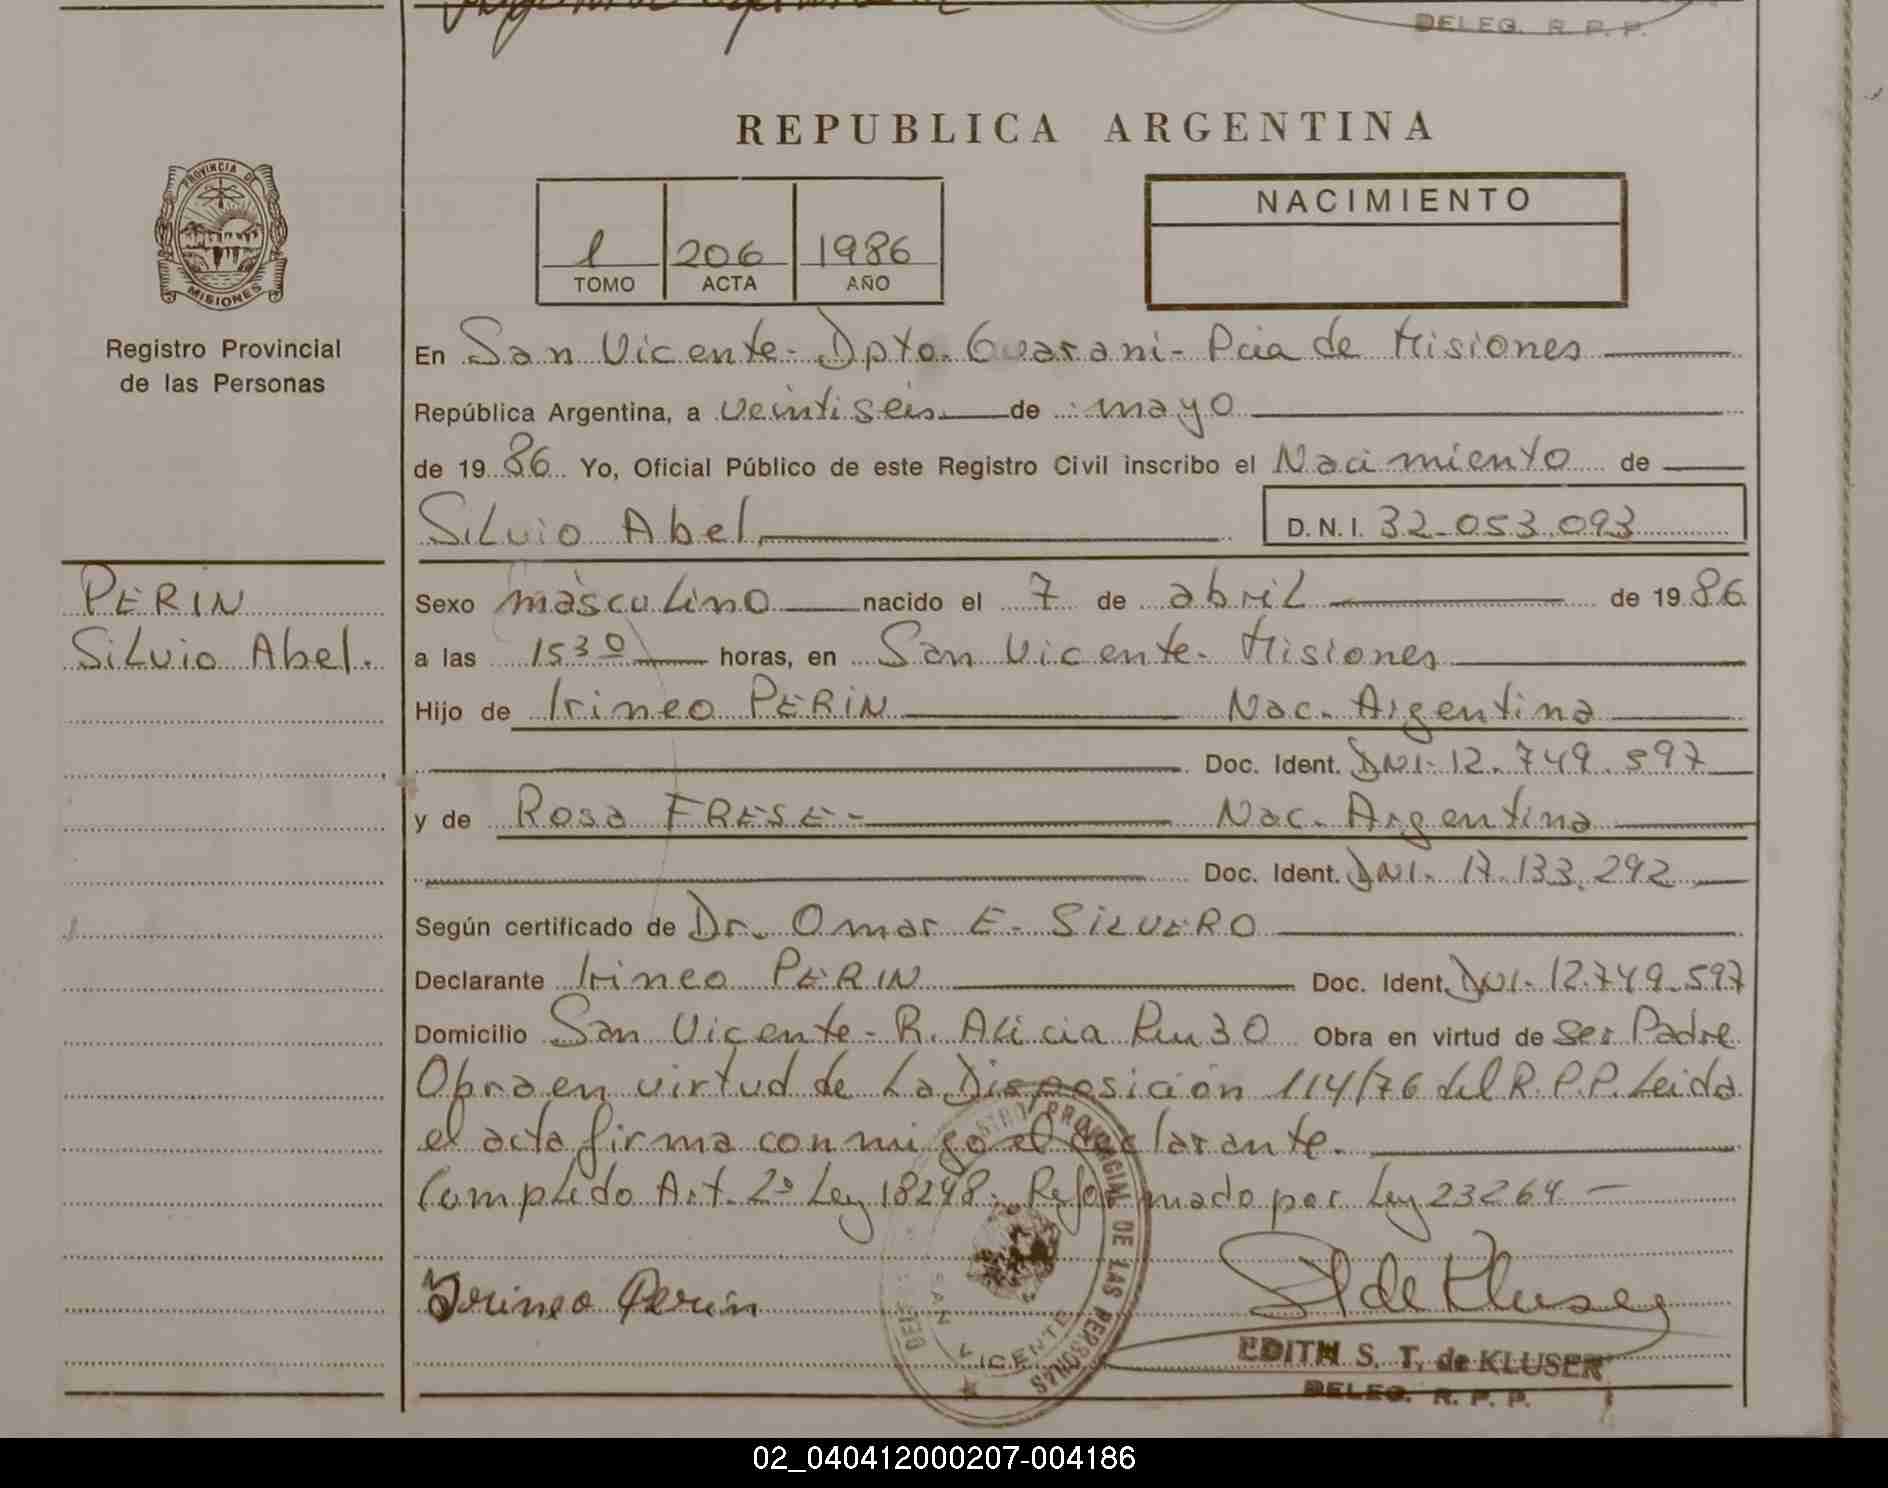 DELEG. R. P. P.
REPUBLICA ARGENTINA
PROVINCIA DE
MISIONES
Registro Provincial
de las Personas
1 206 1986
TOMO ACTA AÑO
NACIMIENTO
En San Vicente - Dpto. Guarani - Pcia de Misiones
República Argentina, a veintiseis de mayo
de 19 86 Yo, Oficial Público de este Registro Civil inscribo el Nacimiento de
Silvio Abel D.N.I. 32.053.093
PERIN
Silvio Abel.
Sexo masculino nacido el 7 de abril de 19 86
a las 15 30 horas, en San Vicente - Misiones
Hijo de Irineo PERIN Nac. Argentina
Doc. Ident. DNI. 12.749.597
y de Rosa FRESE - Nac. Argentina
Doc. Ident. DNI. 17.133.292
Según certificado de Dr. Omar E. SILVERO
Declarante Irineo PERIN Doc. Ident. DNI. 12.749.597
Domicilio San Vicente - R. Alicia Ru 30 Obra en virtud de Ser Padre
Obra en virtud de La Disposición 114/76 del R.P.P. Leida
el acta firma conmigo el declarante.
Complido Art. 2º Ley 18248. Reformado por Ley 23264 -
Irineo Perin
REGISTRO PROVINCIAL DE LAS PERSONAS
DELEG. SAN VICENTE
E de Kluser
EDITH S. T. de KLUSER
DELEG. R. P. P.
02_040412000207-004186